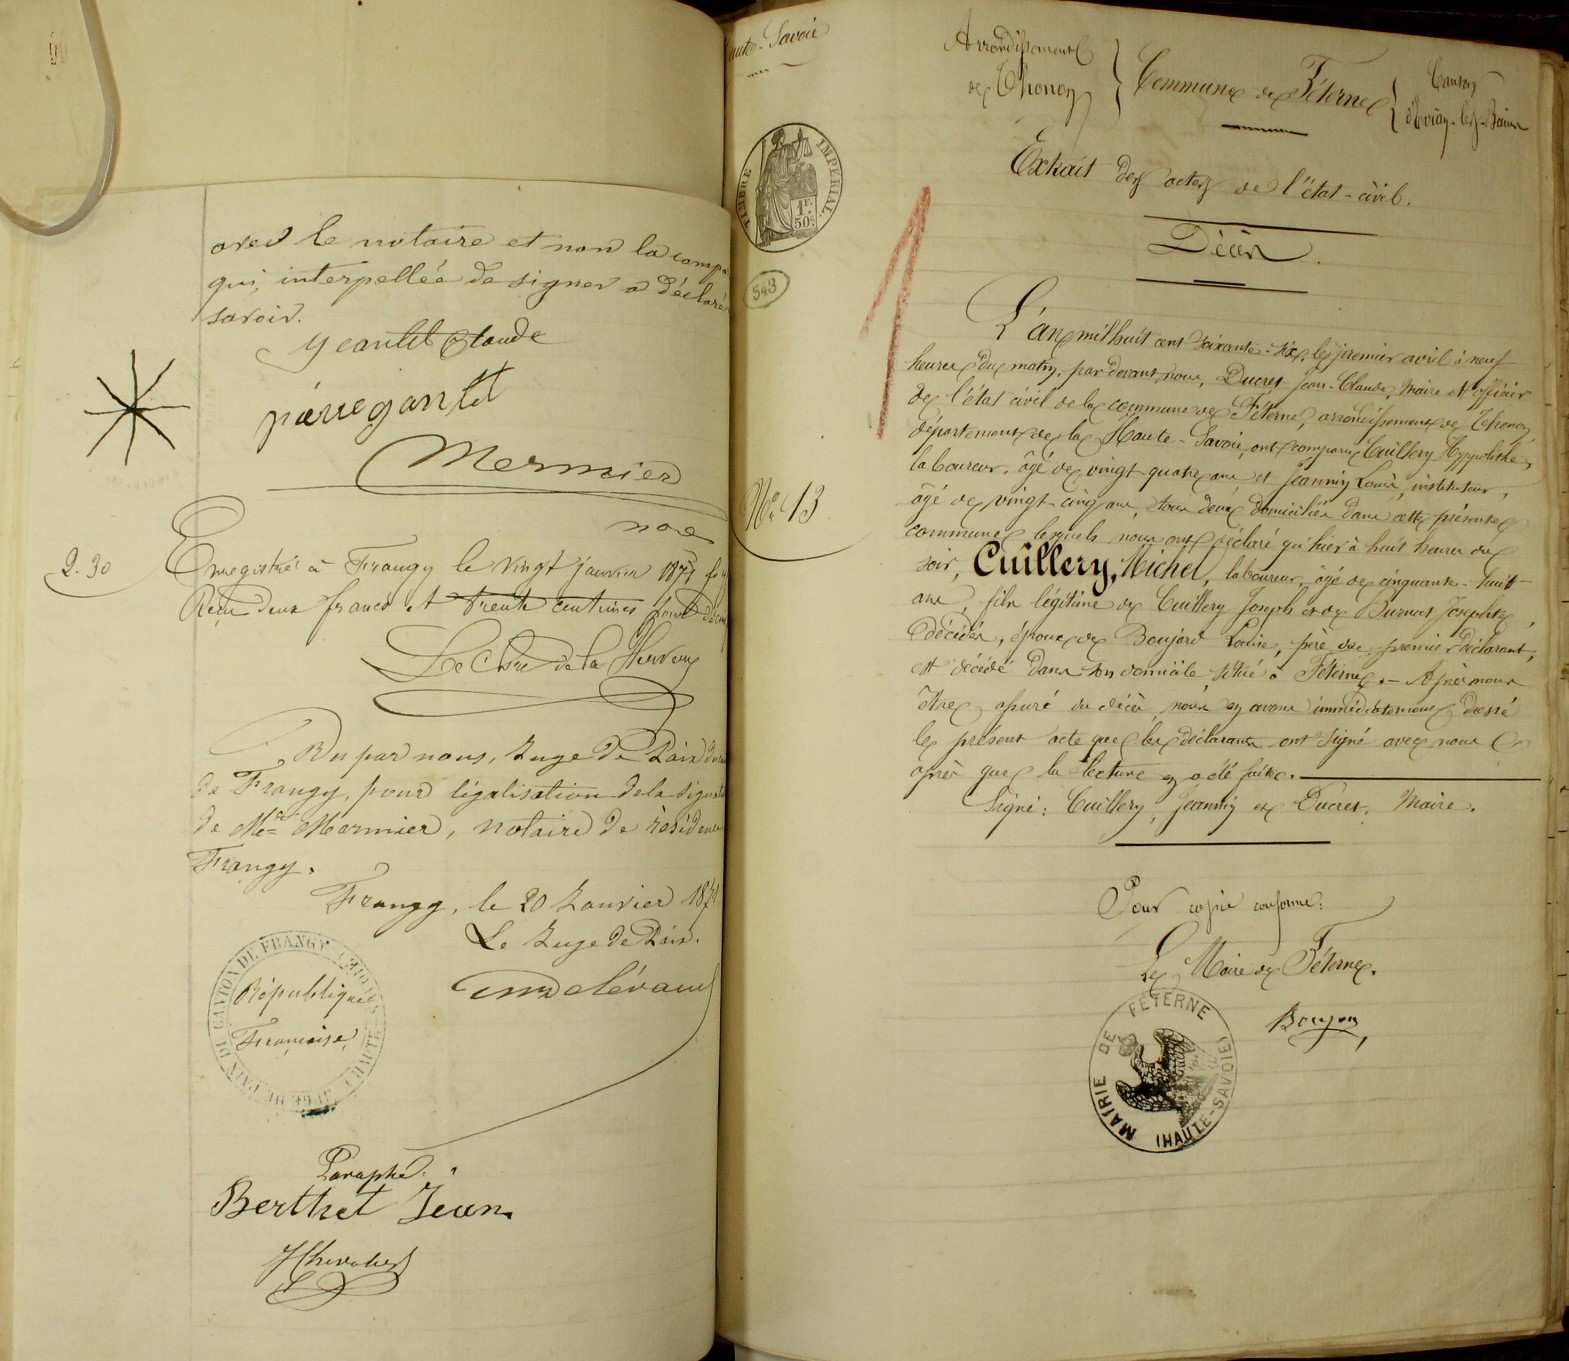 avec le notaire et non la
qui, interpellée de signer a déclaré
savoir.
Claude
pierre jantet
Mermier
nore
2.30
Enregistré à Frangy le vingt janvier 1871
Reçu deux francs et trente centimes pour
Vu par nous, Juge de Paix
de Frangy, pour légalisation de la
de Me Mermier, notaire de résidence
Frangy.
Frangy, le 20 Janvier 1871
Le Juge de Paix.
CANTON DE FRANGY
République
Française
Paraphé.
Berthet Jean
Savoie
TIMBRE IMPÉRIAL
1F.
50c
543
No 13
Arrondissement
de Thonon
Commune de Féterne
Canton
d'Évian-les-Bains
Extrait des actes de l'état-civil.
Décès.
L'an mil huit cent soixante-six, le premier avril à neuf
heures du matin, par devant nous, Ducret Jean-Claude, Maire et officier
de l'état civil de la commune de Féterne, arrondissement de Thonon,
département de la Haute-Savoie, ont comparu Cuillery Hyppolithe,
laboureur, âgé de vingt-quatre ans et Jeannin Louis, instituteur,
âgé de vingt-cinq ans, tous deux domiciliés dans cette présente
commune, lesquels nous ont déclaré qu'hier à huit heures du
soir, Cuillery, Michel, laboureur, âgé de cinquante-huit
ans, fils légitime de Cuillery Joseph et de Josephte,
décédés, époux de Boujard Louise, père du premier déclarant,
est décédé dans son domicile situé à Féterne.- Après nous
être assuré du décès, nous en avons immédiatement dressé
le présent acte que les déclarants ont signé avec nous
après que la lecture en a été faite.
Signé: Cuillery, Jeannin et Ducret, Maire.
Pour copie conforme:
Le Maire de Féterne.
MAIRIE DE FÉTERNE
(HAUTE-SAVOIE)